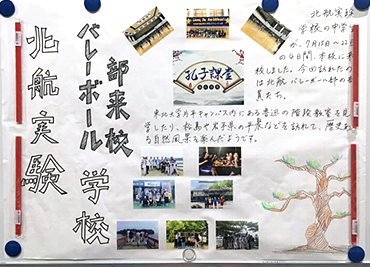 北航実験
学校
バレーボール
部来校
孔子課堂
北航実験
学校の中学生
が、9月15日~22日
の4日間、本校に来
校しました。今回訪れたの
は北航バレーボール部の部
員たち。
東北大学片平キャンパス内にある魯迅の階段教室を見
学したり、松島や岩手県の平泉などを訪れて、歴史あ
る自然風景を楽しんだようです。